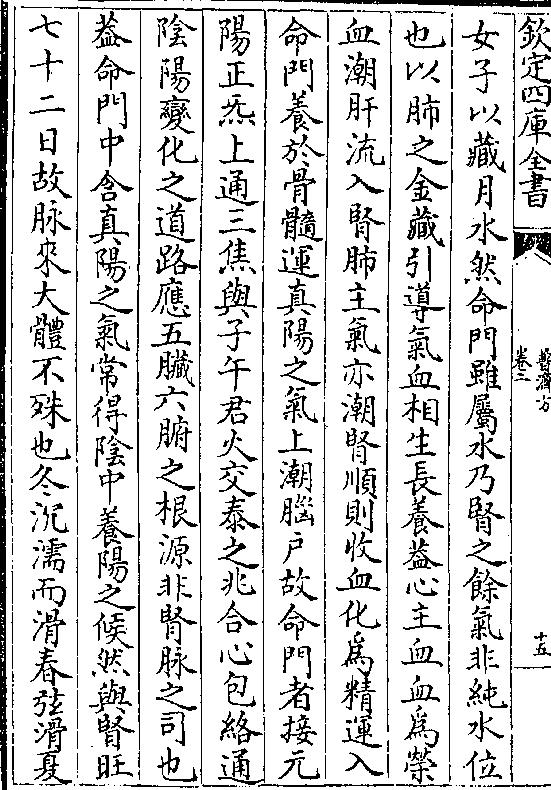 欽定四庫全書
普濟方
卷三
十五
女子以藏月水然命門雖屬水乃腎之餘氣非純水位
也以肺之金藏引導氣血相生長養葢心主血血爲榮
血潮肝流入腎肺主氣亦潮腎順則收血化爲精運入
命門養於骨髓運真陽之氣上潮腦戸故命門者接元
陽正炁上通三焦與子午君火交泰之兆合心包絡通
陰陽變化之道路應五臟六腑之根源非腎脉之司也
葢命門中含真陽之氣常得陰中養陽之候然與腎旺
七十二日故脉來大體不殊也冬沉濡而滑春弦滑夏